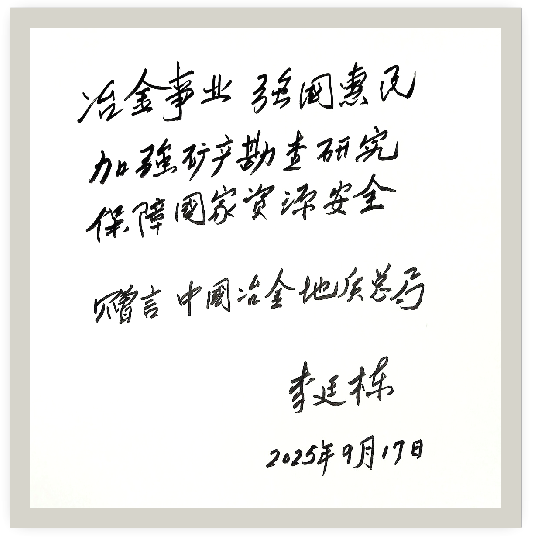 冶金事业 强国惠民
加强矿产勘查研究
保障国家资源安全
赠言 中国冶金地质总局
李廷栋
2025年9月17日